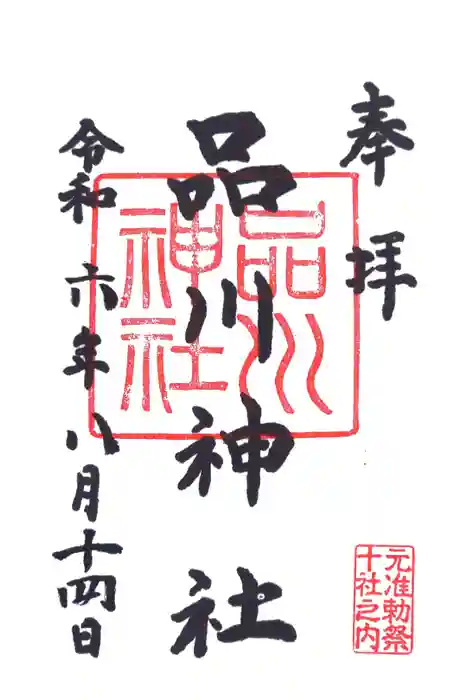 奉拝
品川神社
品川神社
令和六年八月十四日
元准勅祭
十社之内